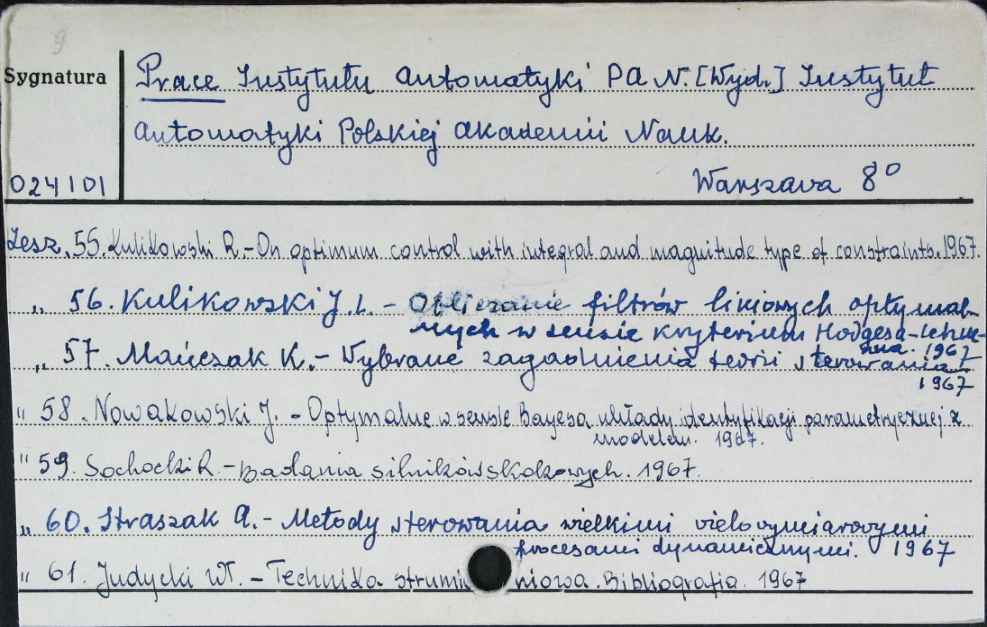 9
Sygnatura
Prace Instytutu Automatyki PAN. [Wyd.] Instytut
Automatyki Polskiej Akademii Nauk.
024101
Warszawa 8°
Zesz. 55. Kulikowski R. - On optimum control with integral and magnitude type of constraints. 1967.
„ 56. Kulikowski J. L. - Obliczanie filtrów liniowych optymal-
nych w sensie kryterium Hodgesa-Lehma-
nna. 1967
„ 57. Mańczak K. - Wybrane zagadnienia teorii sterowania
1967
" 58. Nowakowski J. - Optymalne w sensie Bayesa układy identyfikacji parametrycznej z
modelem. 1967.
" 59. Sochocki R. - Badania silników skokowych. 1967.
„ 60. Straszak A. - Metody sterowania wielkimi wielowymiarowymi
procesami dynamicznymi. 1967
" 61. Judycki Wł. - Technika strumieniowa. Bibliografia. 1967